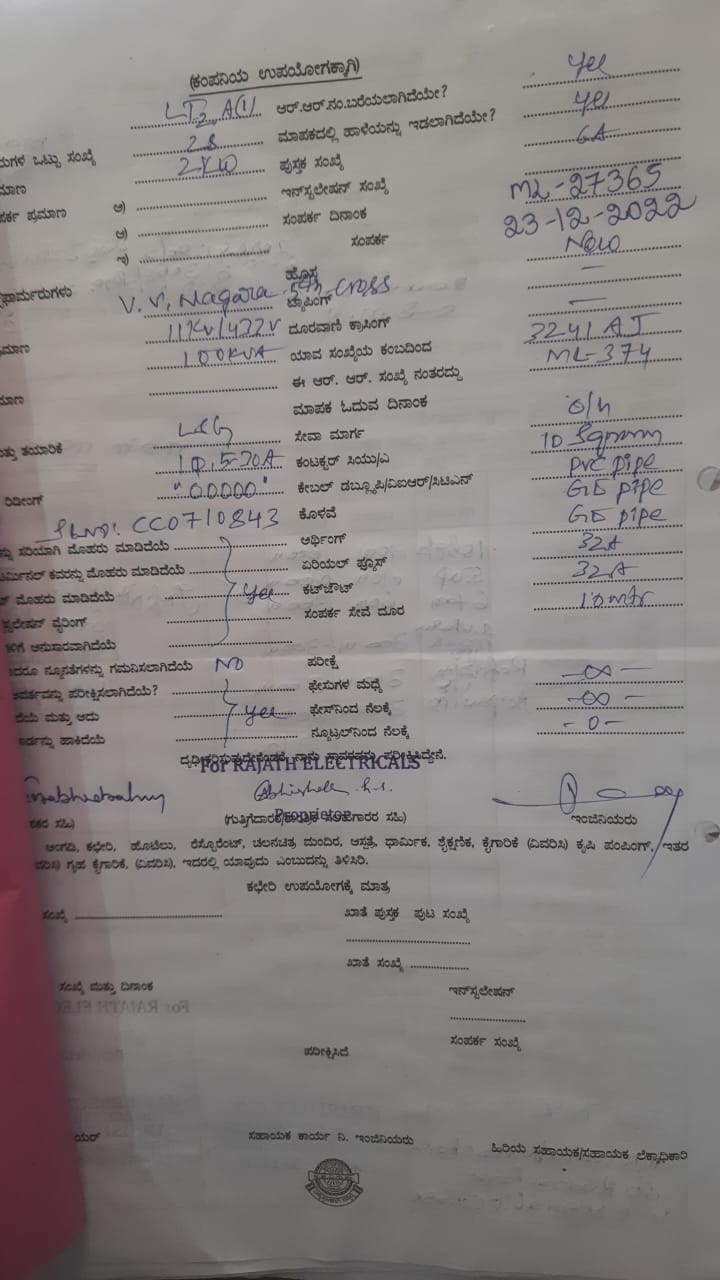 (ಕಂಪನಿಯ ಉಪಯೋಗಕ್ಕಾಗಿ)
LT2 A(1) ಆರ್.ಆರ್.ನಂ.ಬರೆಯಲಾಗಿದೆಯೇ? Yes
ರುಗಳ ಒಟ್ಟು ಸಂಖ್ಯೆ 28 ಮಾಪಕದಲ್ಲಿ ಹಾಳೆಯನ್ನು ಇಡಲಾಗಿದೆಯೇ? Yes
ಮಾಣ 2KW ಪುಸ್ತಕ ಸಂಖ್ಯೆ 6A
ಪರ್ಕ ಪ್ರಮಾಣ ಅ) ಇನ್‌ಸ್ಟಲೇಷನ್ ಸಂಖ್ಯೆ ML-27365
ಆ) ಸಂಪರ್ಕ ದಿನಾಂಕ 23-12-2022
ಇ) ಸಂಪರ್ಕ New
ಫಾರ್ಮರುಗಳು V. V. Nagara 5th cross ಹೊಸ —
ಟ್ಯಾಪಿಂಗ್ —
ಮಾಣ 11KV/433V ದೂರವಾಣಿ ಕ್ರಾಸಿಂಗ್
100KVA ಯಾವ ಸಂಖ್ಯೆಯ ಕಂಬದಿಂದ 3241 AJ
ಮಾಣ ಈ ಆರ್. ಆರ್. ಸಂಖ್ಯೆ ನಂತರದ್ದು ML-374
ಮಾಪಕ ಓದುವ ದಿನಾಂಕ
ತ್ತು ತಯಾರಿಕೆ L&G ಸೇವಾ ಮಾರ್ಗ O/H
1Φ, 5-30A ಕಂಟಕ್ಟರ್ ಸಿಯು/ಎ 10 Sqmm
ರಿಡಿಂಗ್ "00000" ಕೇಬಲ್ ಡಬ್ಲ್ಯೂಪಿ/ವಿಐಆರ್/ಸಿಟಿಎಸ್ PVC pipe
SLNO: CC0710843 ಕೊಳವೆ GI pipe
ನ್ನು ಸರಿಯಾಗಿ ಮೊಹರು ಮಾಡಿದೆಯೆ ಅರ್ಥಿಂಗ್ GI pipe
ರ್ಮಿನಲ್ ಕವರನ್ನು ಮೊಹರು ಮಾಡಿದೆಯೆ ಏರಿಯಲ್ ಫ್ಯೂಸ್ 32A
ಮೊಹರು ಮಾಡಿದೆಯೆ Yes ಕಟ್‌ಔಟ್ 32A
ಸ್ಟಲೇಷನ್ ವೈರಿಂಗ್ ಸಂಪರ್ಕ ಸೇವೆ ದೂರ 10 mtr
ಅನುಸಾರವಾಗಿದೆಯೆ
ದರೂ ನ್ಯೂನತೆಗಳನ್ನು ಗಮನಿಸಲಾಗಿದೆಯೆ NO ಪರೀಕ್ಷೆ
ಪರೀಕ್ಷಿಸಲಾಗಿದೆಯೆ? ಫೇಸುಗಳ ಮಧ್ಯೆ —∞—
ದೆಯೆ ಮತ್ತು ಅದು Yes ಫೇಸ್‌ನಿಂದ ನೆಲಕ್ಕೆ —∞—
ರ್ಡನ್ನು ಹಾಕಿದೆಯೆ ನ್ಯೂಟ್ರಲ್‌ನಿಂದ ನೆಲಕ್ಕೆ -0-
For RAJATH ELECTRICALS
Proprietor
(ಗುತ್ತಿಗೆದಾರರ ಸಹಿ) ಇಂಜಿನಿಯರು
ಅಂಗಡಿ, ಕಛೇರಿ, ಹೊಟೆಲು, ರೆಸ್ಟೋರೆಂಟ್, ಚಲನಚಿತ್ರ ಮಂದಿರ, ಆಸ್ಪತ್ರೆ, ಧಾರ್ಮಿಕ, ಶೈಕ್ಷಣಿಕ, ಕೈಗಾರಿಕೆ (ವಿವರಿಸಿ) ಕೃಷಿ ಪಂಪಿಂಗ್, ಇತರ
ಗೃಹ ಕೈಗಾರಿಕೆ, (ವಿವರಿಸಿ), ಇದರಲ್ಲಿ ಯಾವುದು ಎಂಬುದನ್ನು ತಿಳಿಸಿರಿ.
ಕಛೇರಿ ಉಪಯೋಗಕ್ಕೆ ಮಾತ್ರ
ಸಂಖ್ಯೆ ಖಾತೆ ಪುಸ್ತಕ ಪುಟ ಸಂಖ್ಯೆ
ಖಾತೆ ಸಂಖ್ಯೆ
ಸಂಖ್ಯೆ ಮತ್ತು ದಿನಾಂಕ ಇನ್‌ಸ್ಟಲೇಷನ್
ಸಂಪರ್ಕ ಸಂಖ್ಯೆ
ಪರೀಕ್ಷಿಸಿದೆ
ಯರ್ ಸಹಾಯಕ ಕಾರ್ಯ ನಿ. ಇಂಜಿನಿಯರು ಹಿರಿಯ ಸಹಾಯಕ/ಸಹಾಯಕ ಲೆಕ್ಕಾಧಿಕಾರಿ